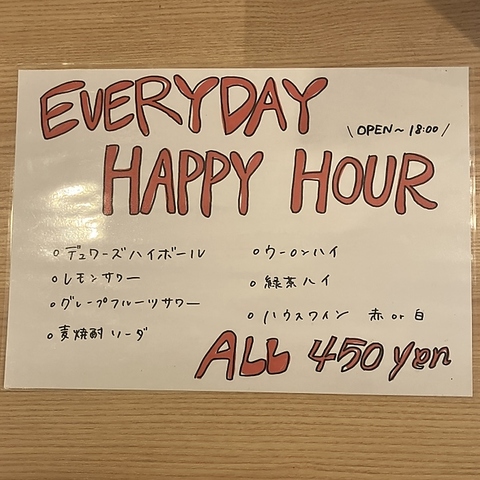 EVERYDAY
\ OPEN～18:00 /
HAPPY HOUR
○ デュワーズハイボール
○ レモンサワー
○ グレープフルーツサワー
○ 麦焼酎ソーダ
○ ウーロンハイ
○ 緑茶ハイ
○ ハウスワイン 赤 or 白
ALL 450 yen